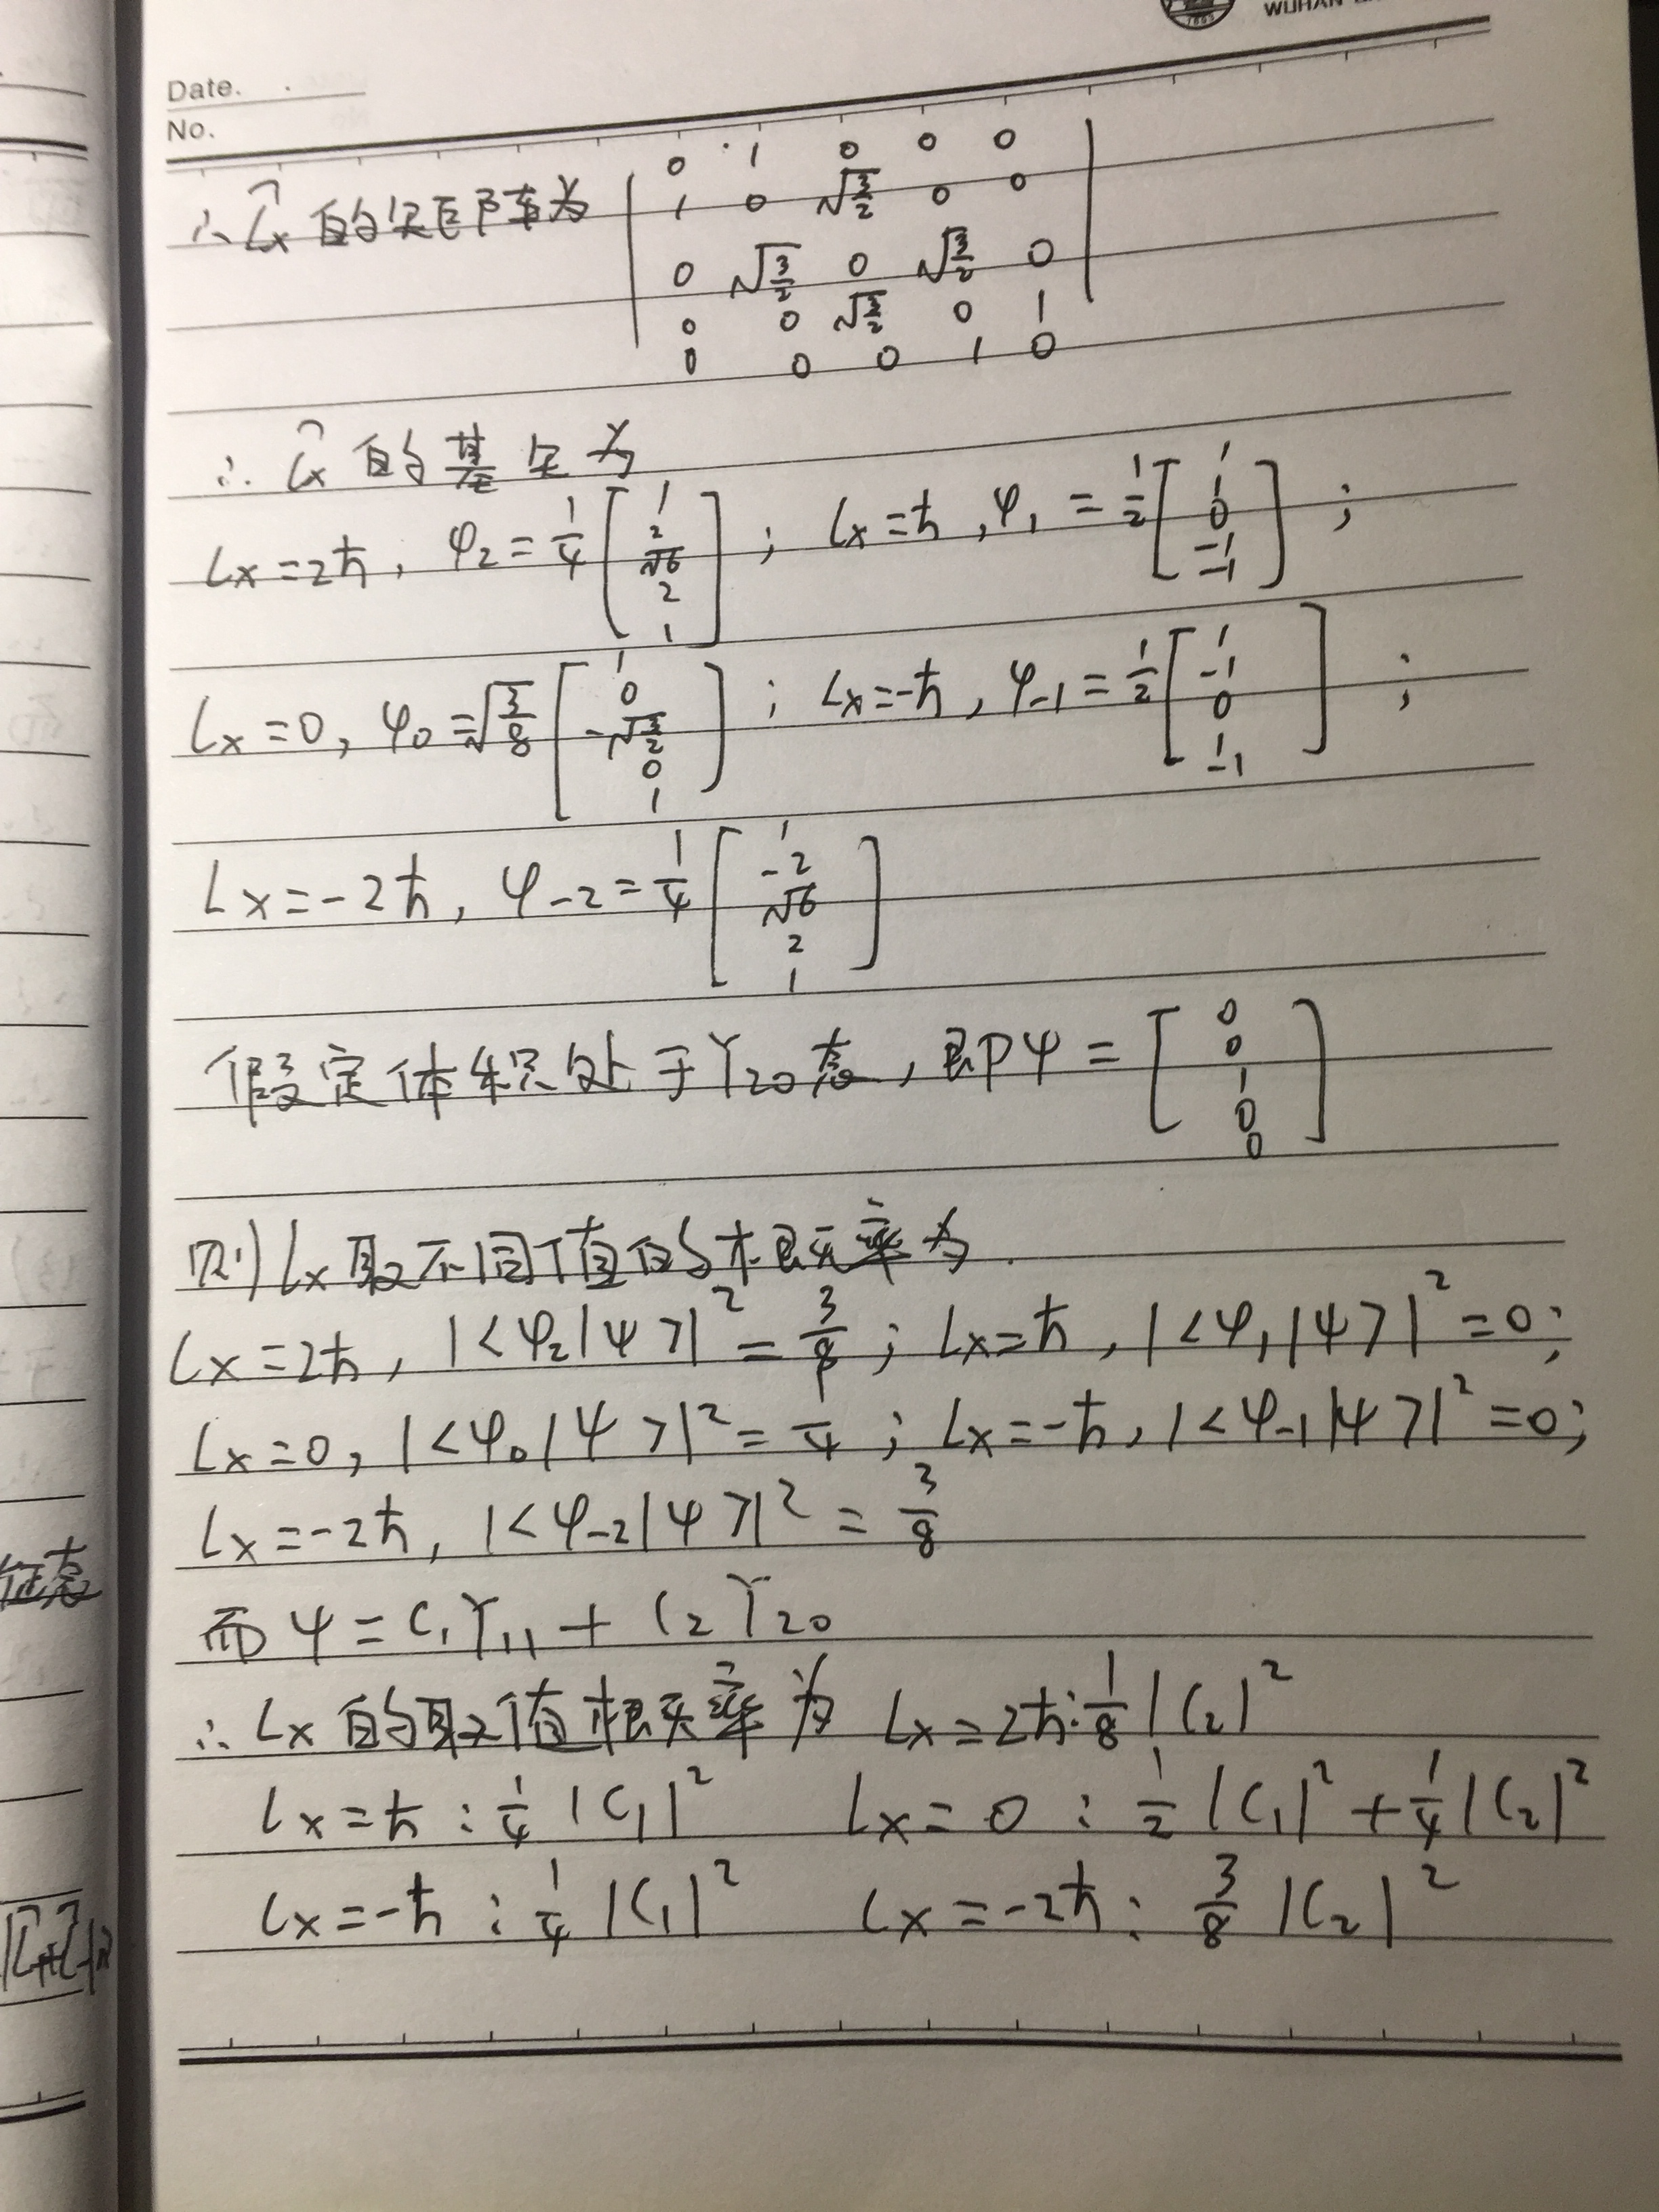 WUHAN
Date.
No.
∴ L̂x的矩阵为 | 0 1 0 0 0
1 0 √3/2 0 0
0 √3/2 0 √3/2 0
0 0 √3/2 0 1
0 0 0 1 0 |
∴ L̂x的基矢为
Lx=2ħ, φ2=1/4 [1 2 √6 2 1]; Lx=ħ, φ1=1/2 [1 1 0 -1 -1];
Lx=0, φ0=√3/8 [1 0 -√3/2 0 1]; Lx=-ħ, φ-1=1/2 [1 -1 0 1 -1];
Lx=-2ħ, φ-2=1/4 [1 -2 √6 2 1]
假定体系处于Y20态, 即ψ=[0 0 1 0 0]
则Lx取不同值的概率为
Lx=2ħ, |<φ2|ψ>|²=3/8; Lx=ħ, |<φ1|ψ>|²=0;
Lx=0, |<φ0|ψ>|²=1/4; Lx=-ħ, |<φ-1|ψ>|²=0;
Lx=-2ħ, |<φ-2|ψ>|²=3/8
而ψ=C1Y11+C2Y20
∴ Lx的取值概率为 Lx=2ħ:1/8|C2|²
Lx=ħ:1/4|C1|² Lx=0:1/2|C1|²+1/4|C2|²
Lx=-ħ:1/4|C1|² Lx=-2ħ:3/8|C2|²